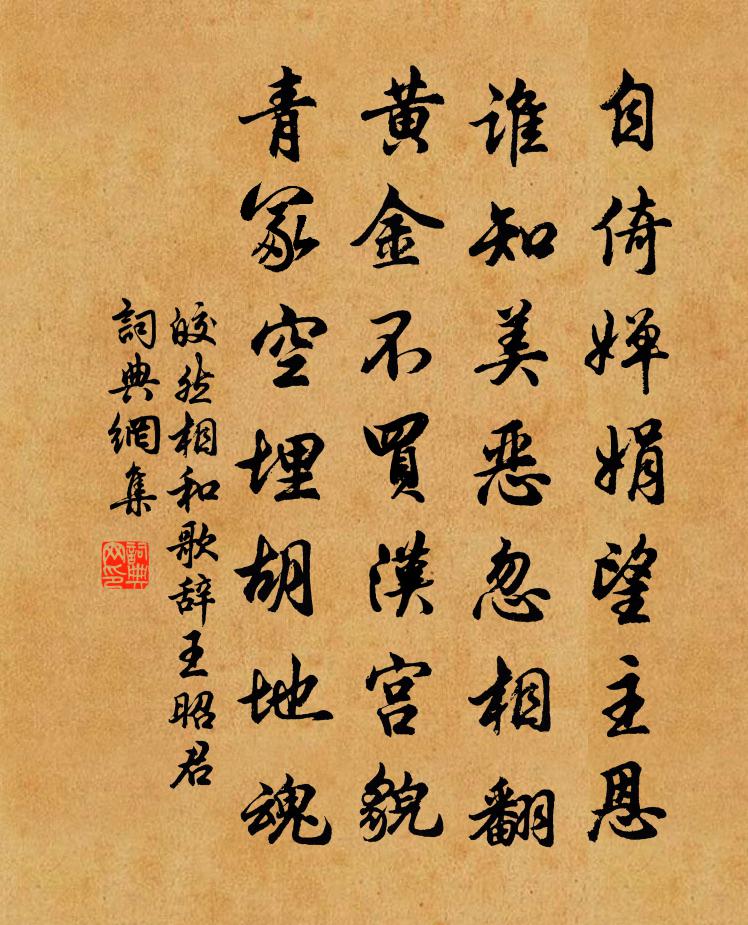 自倚嬋娟望主恩
誰知美惡忽相翻
黃金不買漢宮貌
青冢空埋胡地魂
皎然相和歌辞王昭君
詞典網集
詞典网印